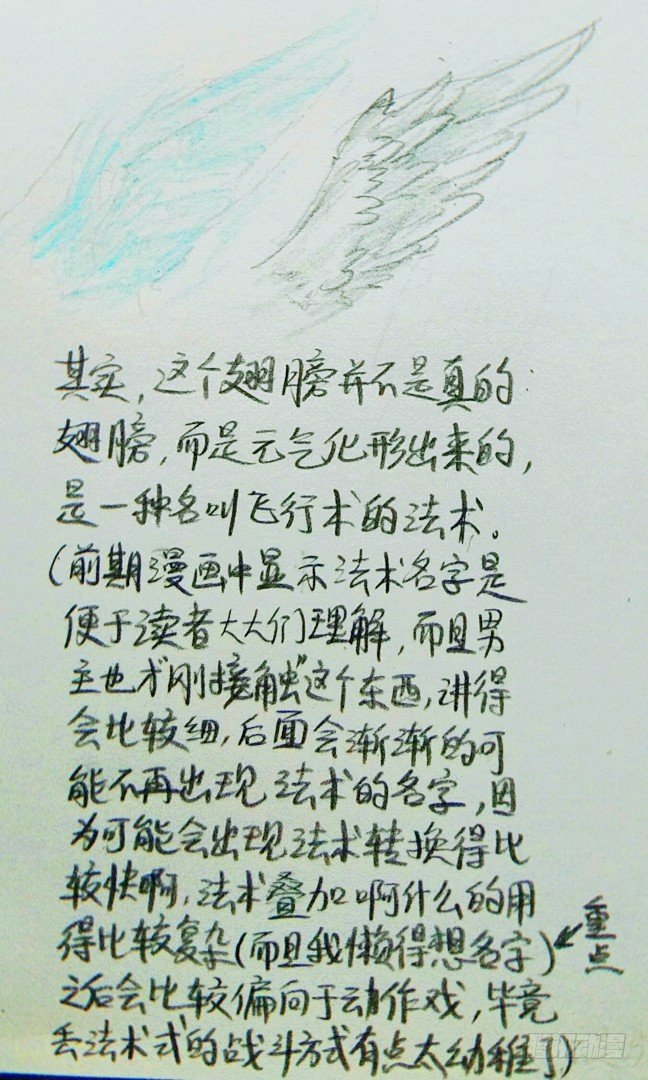 其实，这个翅膀并不是真的
翅膀，而是元气化形出来的，
是一种名叫飞行术的法术。
(前期漫画中显示法术名字是
便于读者大大们理解，而且男
主也才刚接触"这个东西，讲得
会比较细，后面会渐渐的可
能不再出现法术的名字，因
为可能会出现法术转换得比
较快啊，法术叠加啊什么的用
得比较复杂(而且我懒得想名字)
重点
之后会比较偏向于动作戏，毕竟
丢法术式的战斗方式有点太幼稚了)